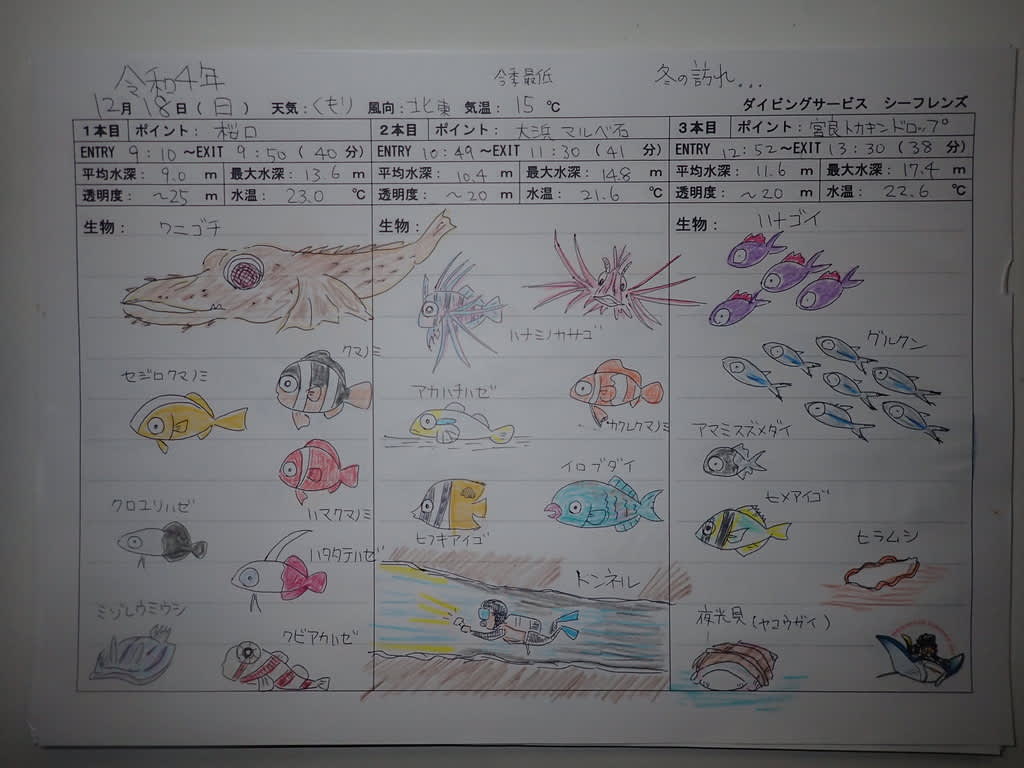 令和4年 今季最低 冬の訪れ...
12月18日(日) 天気:くもり 風向:北東 気温:15℃ ダイビングサービス シーフレンズ
1本目 ポイント: 桜口
ENTRY 9:10~EXIT 9:50(40分)
平均水深: 9.0 m 最大水深: 13.6 m
透明度: ~25 m 水温: 23.0 ℃
生物: ワニゴチ
クマノミ
セジロクマノミ
ハマクマノミ
クロユリハゼ
ハタタテハゼ
ミゾレウミウシ
クビアカハゼ
2本目 ポイント: 大浜マルベ石
ENTRY 10:49~EXIT 11:30(41分)
平均水深: 10.4 m 最大水深: 14.8 m
透明度: ~20 m 水温: 21.6 ℃
生物:
ハナミノカサゴ
アカハチハゼ
カクレクマノミ
イロブダイ
ヒフキアイゴ
トンネル
3本目 ポイント: 宮良トカキンドロップ
ENTRY 12:52~EXIT 13:30(38分)
平均水深: 11.6 m 最大水深: 17.4 m
透明度: ~20 m 水温: 22.6 ℃
生物: ハナゴイ
グルクン
アマミスズメダイ
ヒメアイゴ
ヒラムシ
夜光貝(ヤコウガイ)